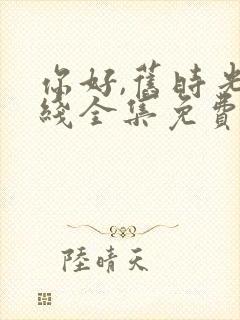 你好,舊時光
綫全集免費
陸晴天